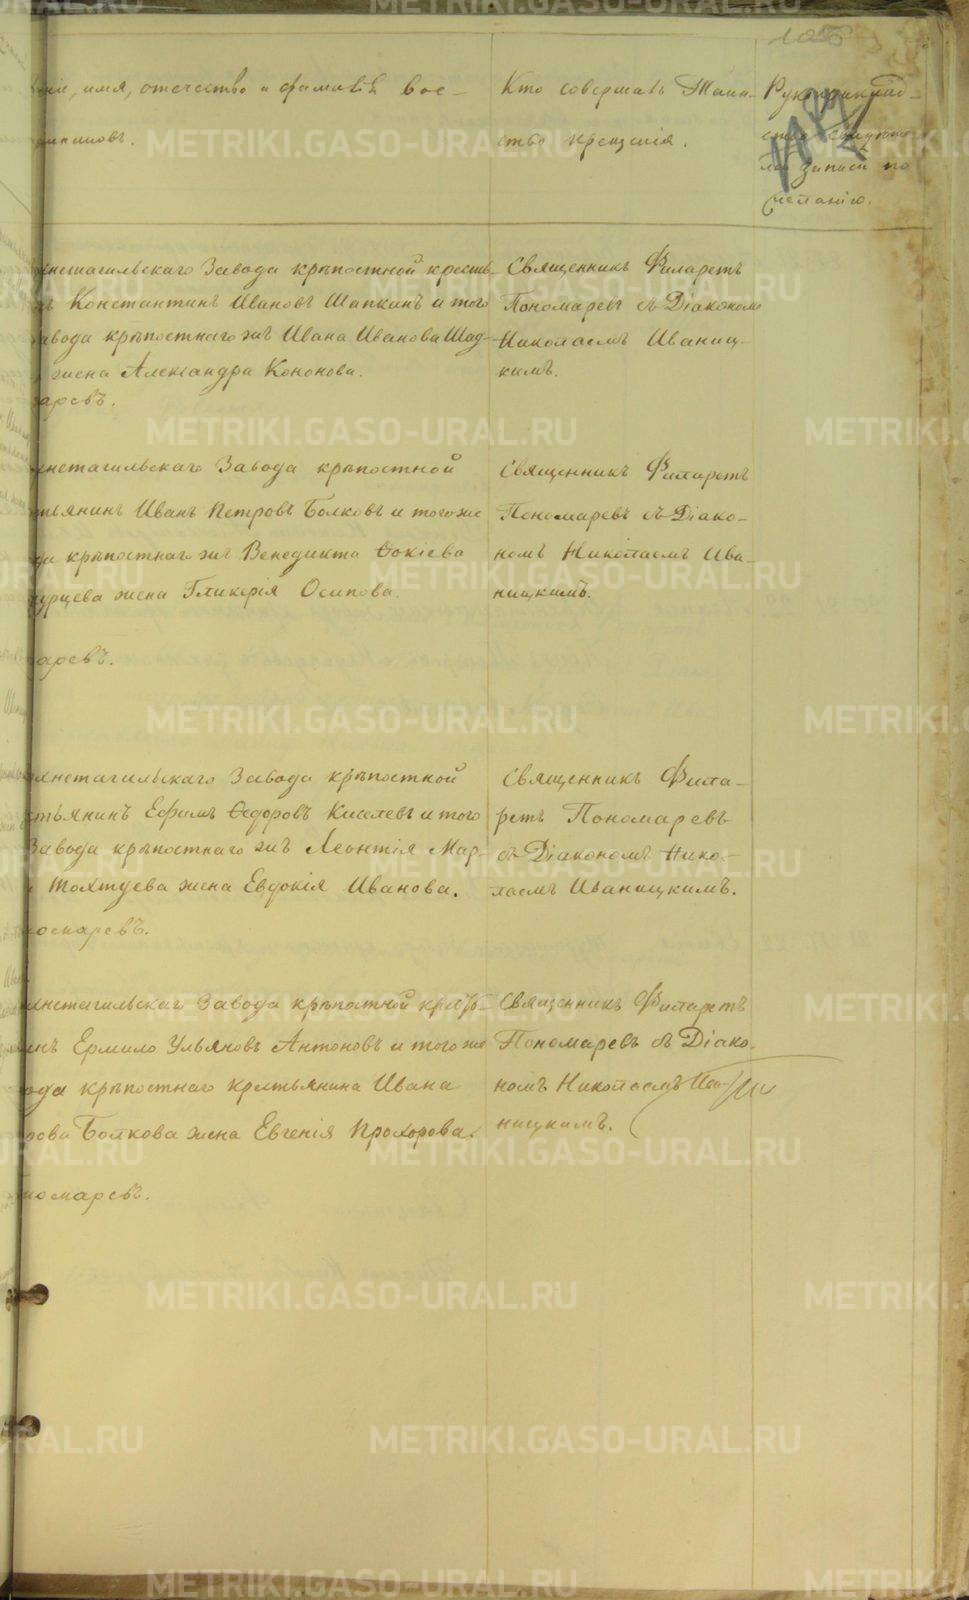 имя, отчество и фамилія вос-
Кто совершалъ Таин-
ство крещенія.
записи по
желанію.
нетагильскаго Завода крѣпостной кресть-
Константинъ Ивановъ Шапкинъ и того
завода крѣпостнаго жъ Ивана Иванова Шад-
жена Александра Кононова.
аревъ.
Священникъ Филаретъ
Пономаревъ съ Діакономъ
Николаемъ Иваниц-
кимъ.
нетагильскаго Завода крѣпостной
тьянинъ Иванъ Петровъ Болковъ и того же
да крѣпостнаго жъ Венедикта Фокіева
урцева жена Гликерія Осипова.
аревъ.
Священникъ Филаретъ
Пономаревъ съ Діако-
номъ Николаемъ Ива-
ницкимъ.
жнетагильскаго Завода крѣпостной
стьянинъ Ефимъ Ѳедоровъ Киселевъ и того
Завода крѣпостнаго жъ Леонтія Мар-
Толтуева жена Евдокія Иванова.
омаревъ.
Священникъ Фила-
ретъ Пономаревъ
съ Діакономъ Нико-
лаемъ Иваницкимъ.
жнетагильскаго Завода крѣпостной кресть-
инъ Ермило Ульяновъ Антоновъ и того же
ода крѣпостнаго крестьянина Ивана
рова Болкова жена Евгенія Прохорова.
номаревъ.
Священникъ Филаретъ
Пономаревъ съ Діако-
номъ Николаемъ Ива-
ницкимъ.
METRIKI.GASO-URAL.RU